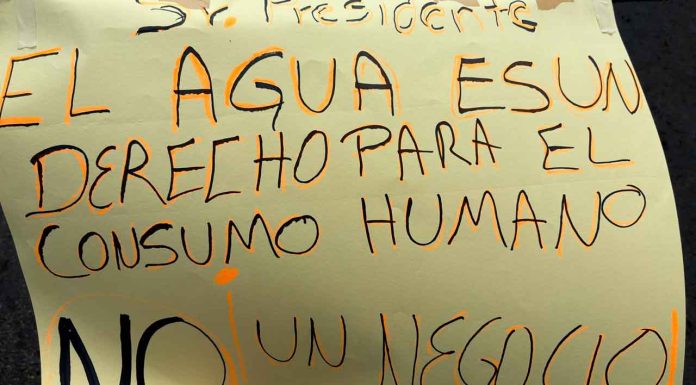 Sr. Presidente
EL AGUA ES UN
DERECHO PARA EL
CONSUMO HUMANO
NO ¡UN NEGOCIO!